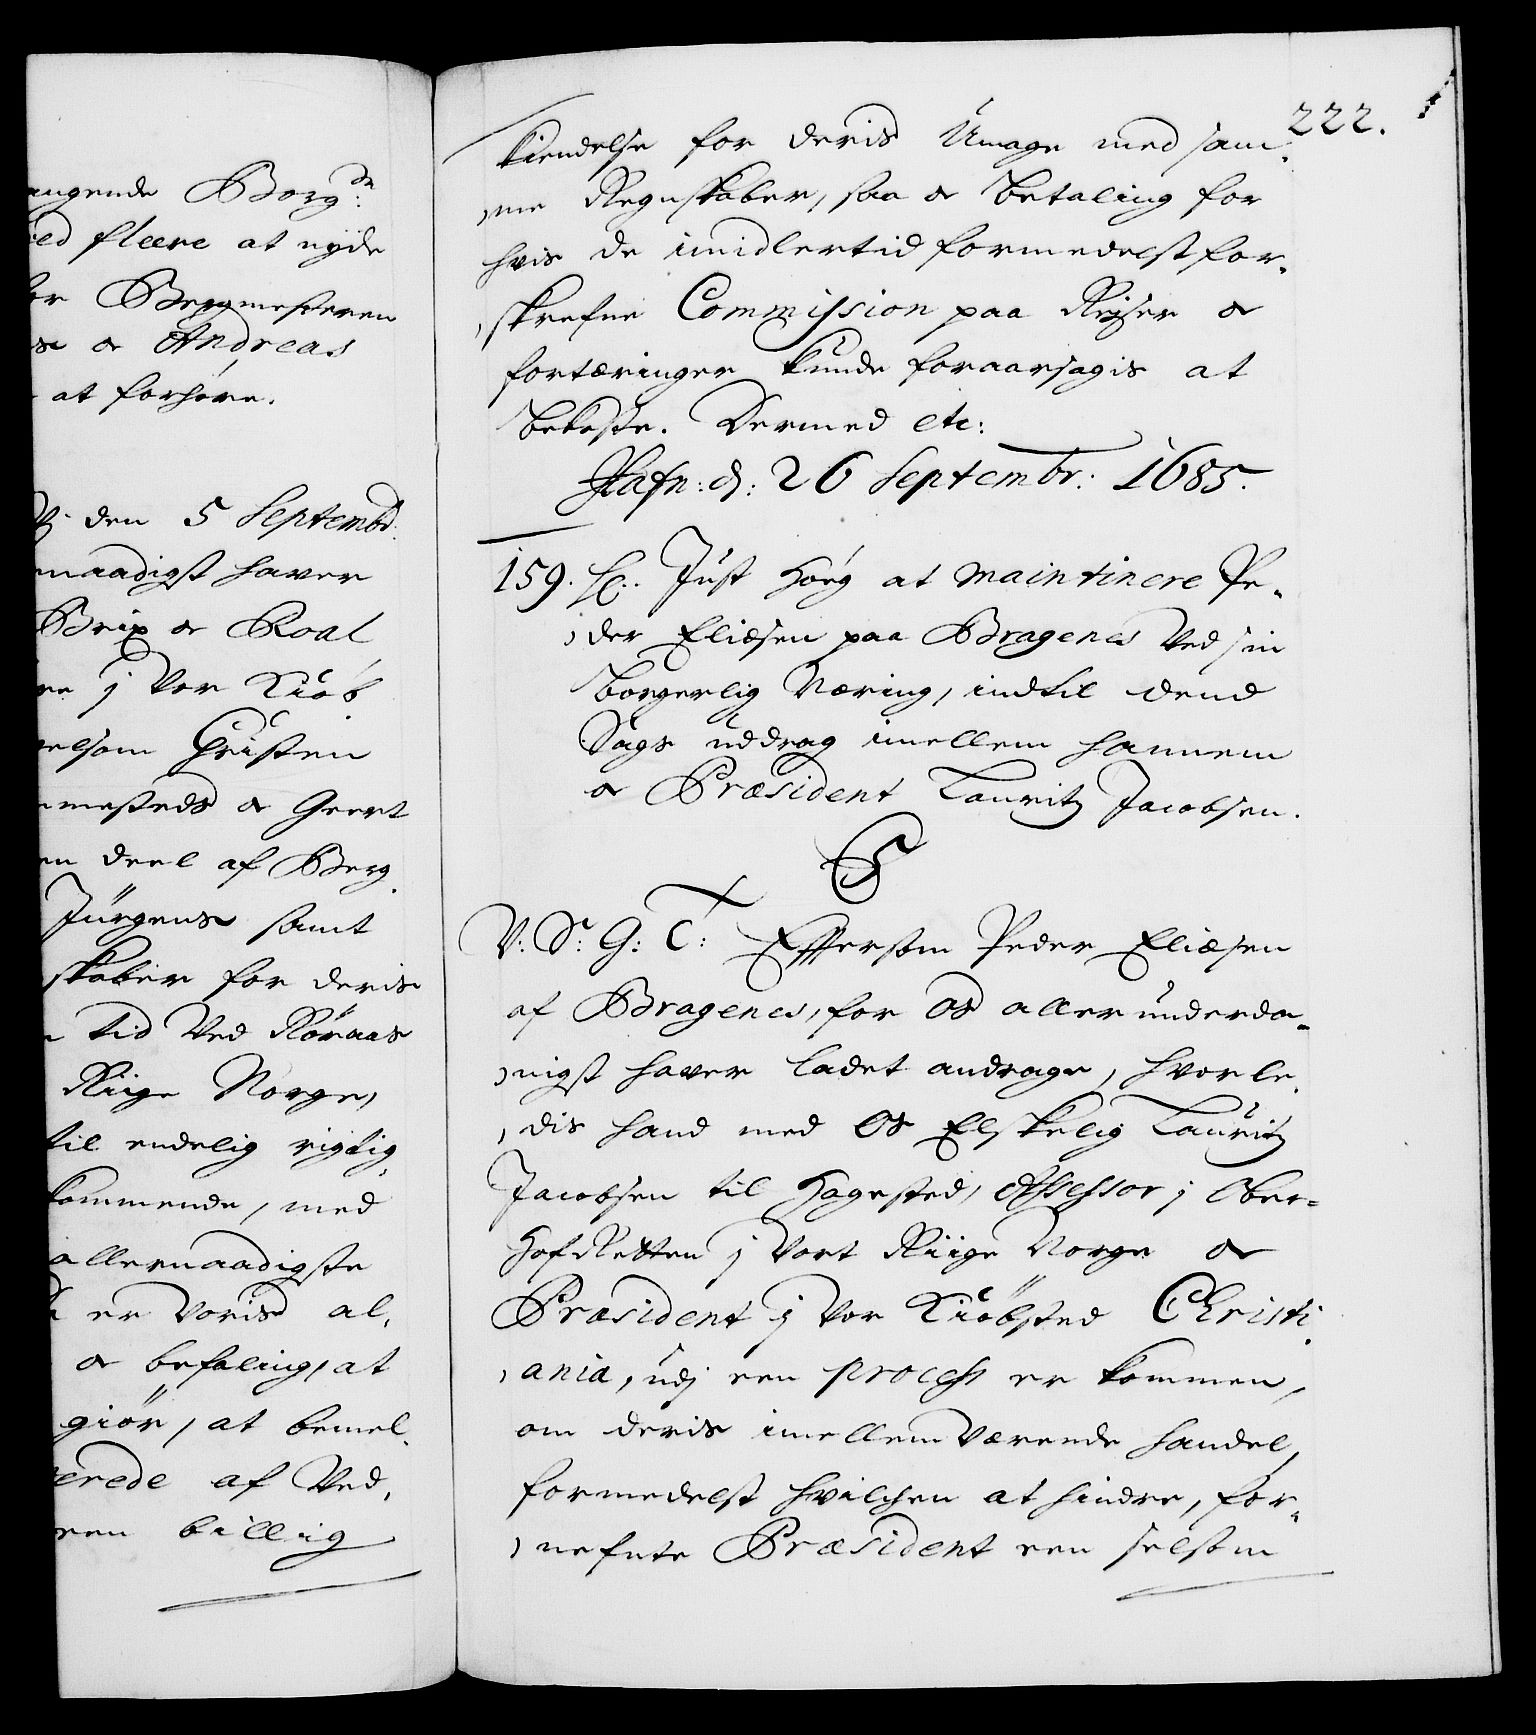 angende Borg:
ed fleere at nyde
or Bergmesteren
se & Andreas
at forhøre.
den 5 Septembr:
naadigst haver
Brix & Roal
re j Vor Kiøb
elsom Christen
mesteds & Geert
en deel af Berg
Jürgens samt
skaber for deris
tid Ved Röraas
Riige Norge,
til endelig rigtig
kommende, med
allernaadigste
er Voris al,
& befaling, at
giör, at bemel,
erede af Ved,
een billig
222.
kiendelse for deris Umage med sam,
,me Regnskaber, saa & betaling for
hvis de imidlertid formedelst for,
,skrefne Commission paa Reyser &
fortæringer kunde foraarsagis at
bekoste. Dermed etc:
Hafn: d: 26 Septembr: 1685.
159. Sl. Just Høeg at maintinere Pe,
,der Eliæsen paa Bragenes Ved sin
borgerlig Næring, indtil dend
Sags uddrag imellem hannem
& Præsident Lauritz Jacobsen.
C5
V: S: G: T: Efftersom Peder Eliæsen
af Bragenes, for Os allerunderda,
,nigst haver ladet andrage, hvorle,
,dis hand med Os Elskelig Lauritz
Jacobsen til Hagested, Assessor j Ober,
Hof Retten j Vort Riige Norge &
Præsident j Vor Kiöbsted Christi,
,ania, udj een process er kommen,
om deris imellem Værende handel,
formedelst hvilchen at hindre, for,
,nefnte Præsident een selsom